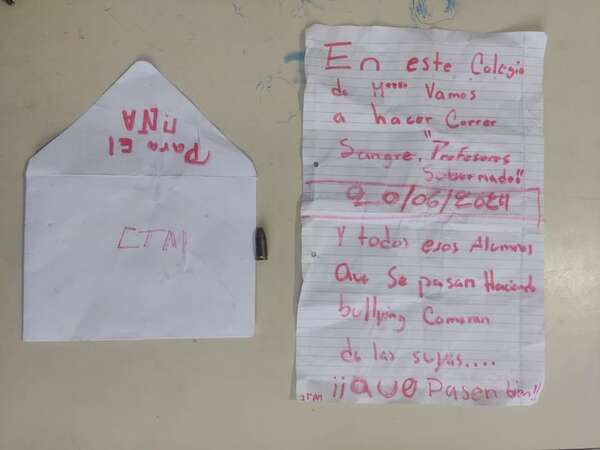 Para El
ɴNA
CTM
En este Colegio
de M**** Vamos
a hacer Correr
Sangre. "Profesores
Subornados"
20/06/2024
Y todos esos Alumnos
Que Se pasan Haciendo
bullying Comeran
de las suyas....
¡¡QUE Pasen bien!!